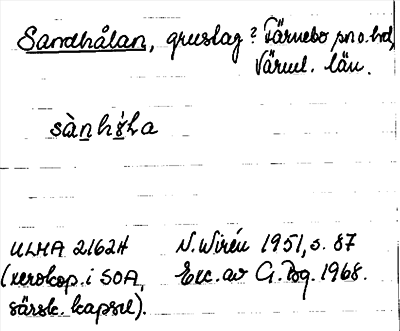 Sandhålan, grustag? Färnebo sn o. hd,
Värml. län.
sàn
ULMA 21624 N. Wirén 1951, s. 87
(xerokop. i SOA, Exc. av G. 1968.
särsk. kapsel).